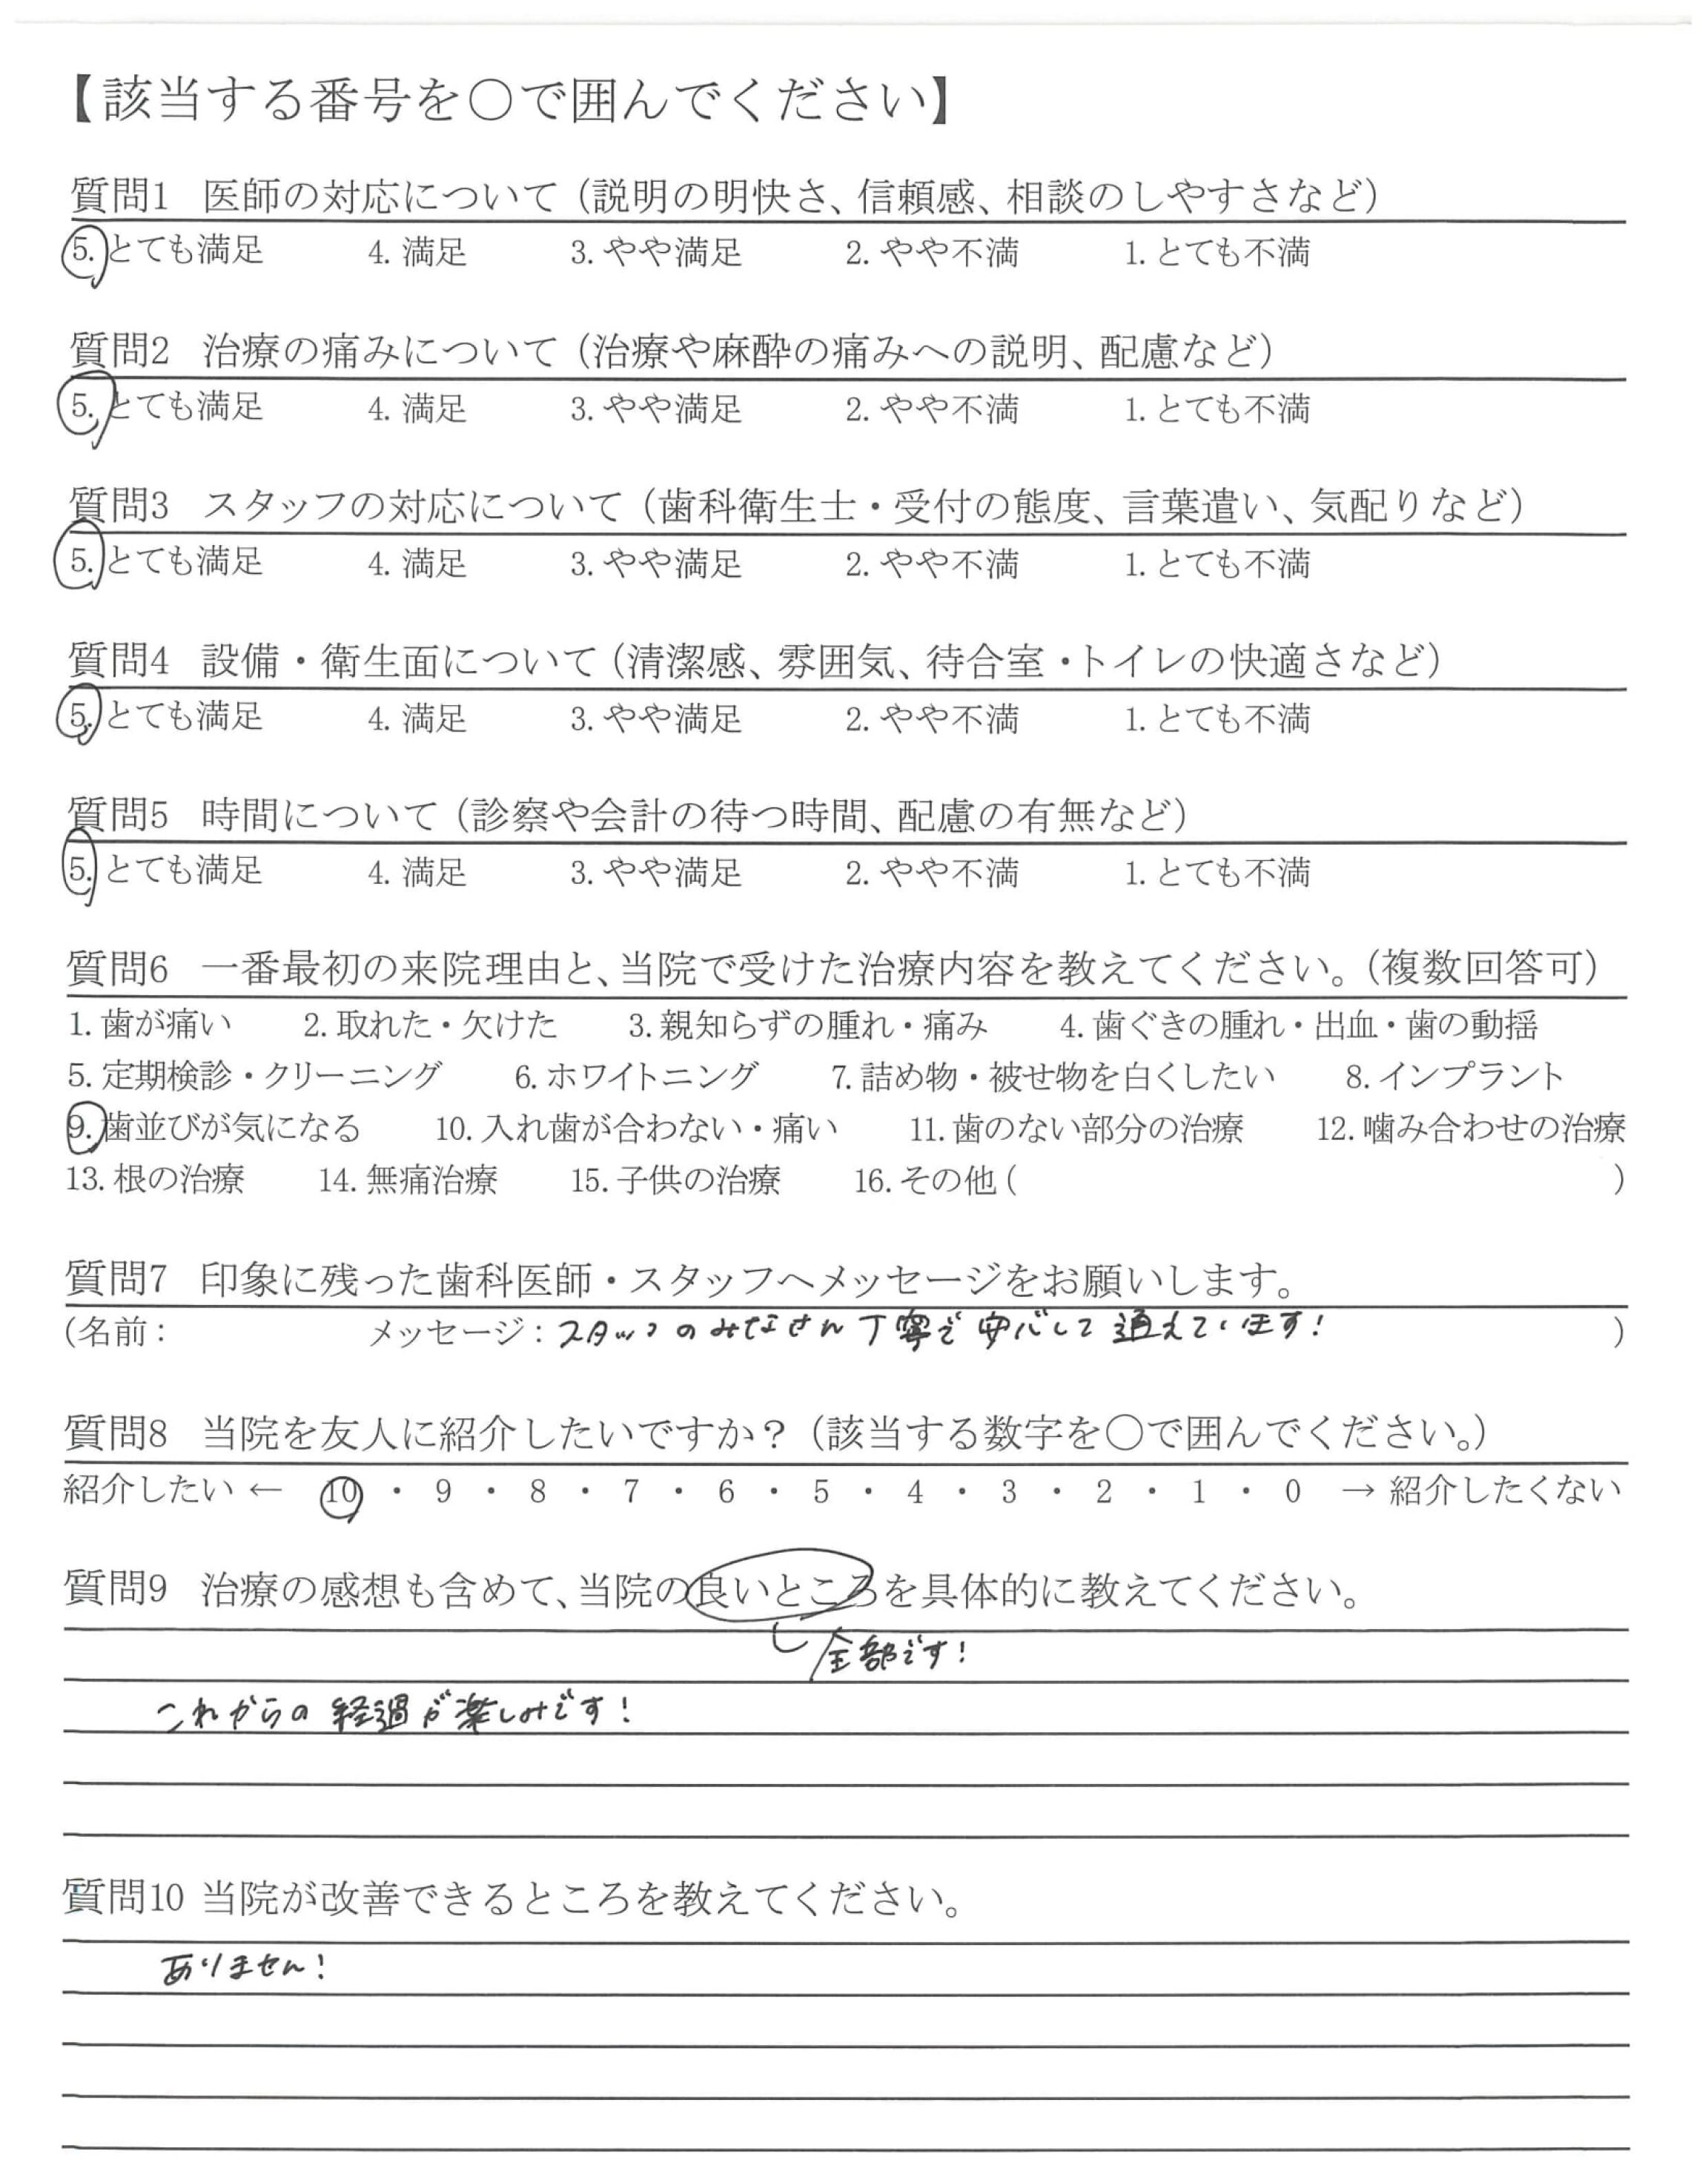 【該当する番号を〇で囲んでください】
質問1 医師の対応について（説明の明快さ、信頼感、相談のしやすさなど）
5. とても満足 4. 満足 3. やや満足 2. やや不満 1. とても不満
質問2 治療の痛みについて（治療や麻酔の痛みへの説明、配慮など）
5. とても満足 4. 満足 3. やや満足 2. やや不満 1. とても不満
質問3 スタッフの対応について（歯科衛生士・受付の態度、言葉遣い、気配りなど）
5. とても満足 4. 満足 3. やや満足 2. やや不満 1. とても不満
質問4 設備・衛生面について（清潔感、雰囲気、待合室・トイレの快適さなど）
5. とても満足 4. 満足 3. やや満足 2. やや不満 1. とても不満
質問5 時間について（診察や会計の待つ時間、配慮の有無など）
5. とても満足 4. 満足 3. やや満足 2. やや不満 1. とても不満
質問6 一番最初の来院理由と、当院で受けた治療内容を教えてください。（複数回答可）
1. 歯が痛い 2. 取れた・欠けた 3. 親知らずの腫れ・痛み 4. 歯ぐきの腫れ・出血・歯の動揺
5. 定期検診・クリーニング 6. ホワイトニング 7. 詰め物・被せ物を白くしたい 8. インプラント
9. 歯並びが気になる 10. 入れ歯が合わない・痛い 11. 歯のない部分の治療 12. 噛み合わせの治療
13. 根の治療 14. 無痛治療 15. 子供の治療 16. その他（ ）
質問7 印象に残った歯科医師・スタッフへメッセージをお願いします。
（名前： メッセージ：スタッフのみなさん丁寧で安心して通えています！ ）
質問8 当院を友人に紹介したいですか？（該当する数字を〇で囲んでください。）
紹介したい ← 10 ・ 9 ・ 8 ・ 7 ・ 6 ・ 5 ・ 4 ・ 3 ・ 2 ・ 1 ・ 0 → 紹介したくない
質問9 治療の感想も含めて、当院の良いところを具体的に教えてください。
全部です！
これからの経過が楽しみです！
質問10 当院が改善できるところを教えてください。
ありません！